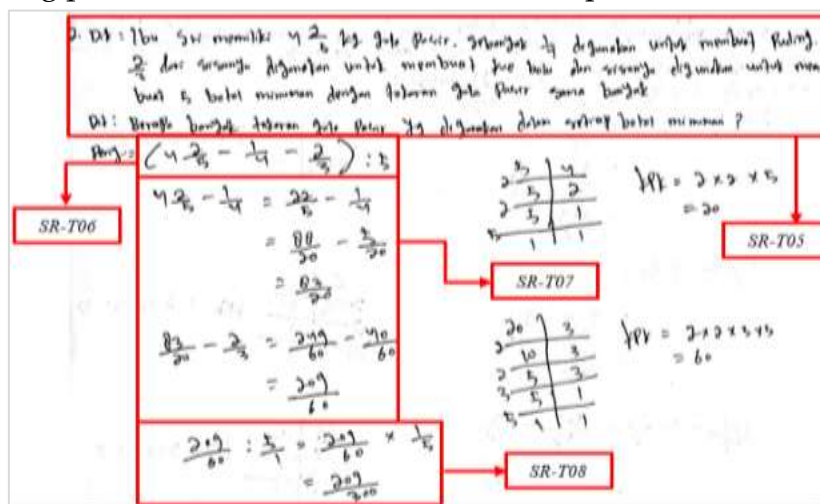 2. Dit : Ibu Sri memiliki 4 2/5 kg gula pasir. sebanyak 1/4 digunakan untuk membuat Puding.
2/3 dari sisanya digunakan untuk membuat kue bolu dan sisanya digunakan untuk mem
buat 5 botol minuman dengan takaran gula pasir sama banyak
Dit : Berapa banyak takaran gula pasir yg digunakan dalam setiap botol minuman ?
(4 2/5 - 1/4 - 2/3) : 5
4 2/5 - 1/4 = 22/5 - 1/4
= 88/20 - 5/20
= 83/20
5 4
2 5 2
2 5 1
5 1 1
kpk = 2 x 2 x 5
= 20
SR-T06
SR-T05
SR-T07
83/20 - 2/3 = 249/60 - 40/60
= 209/60
20 3
2 10 3
2 5 3
3 5 1
5 1 1
kpk = 2 x 2 x 3 x 5
= 60
209/60 : 5/1 = 209/60 x 1/5
= 209/300
SR-T08